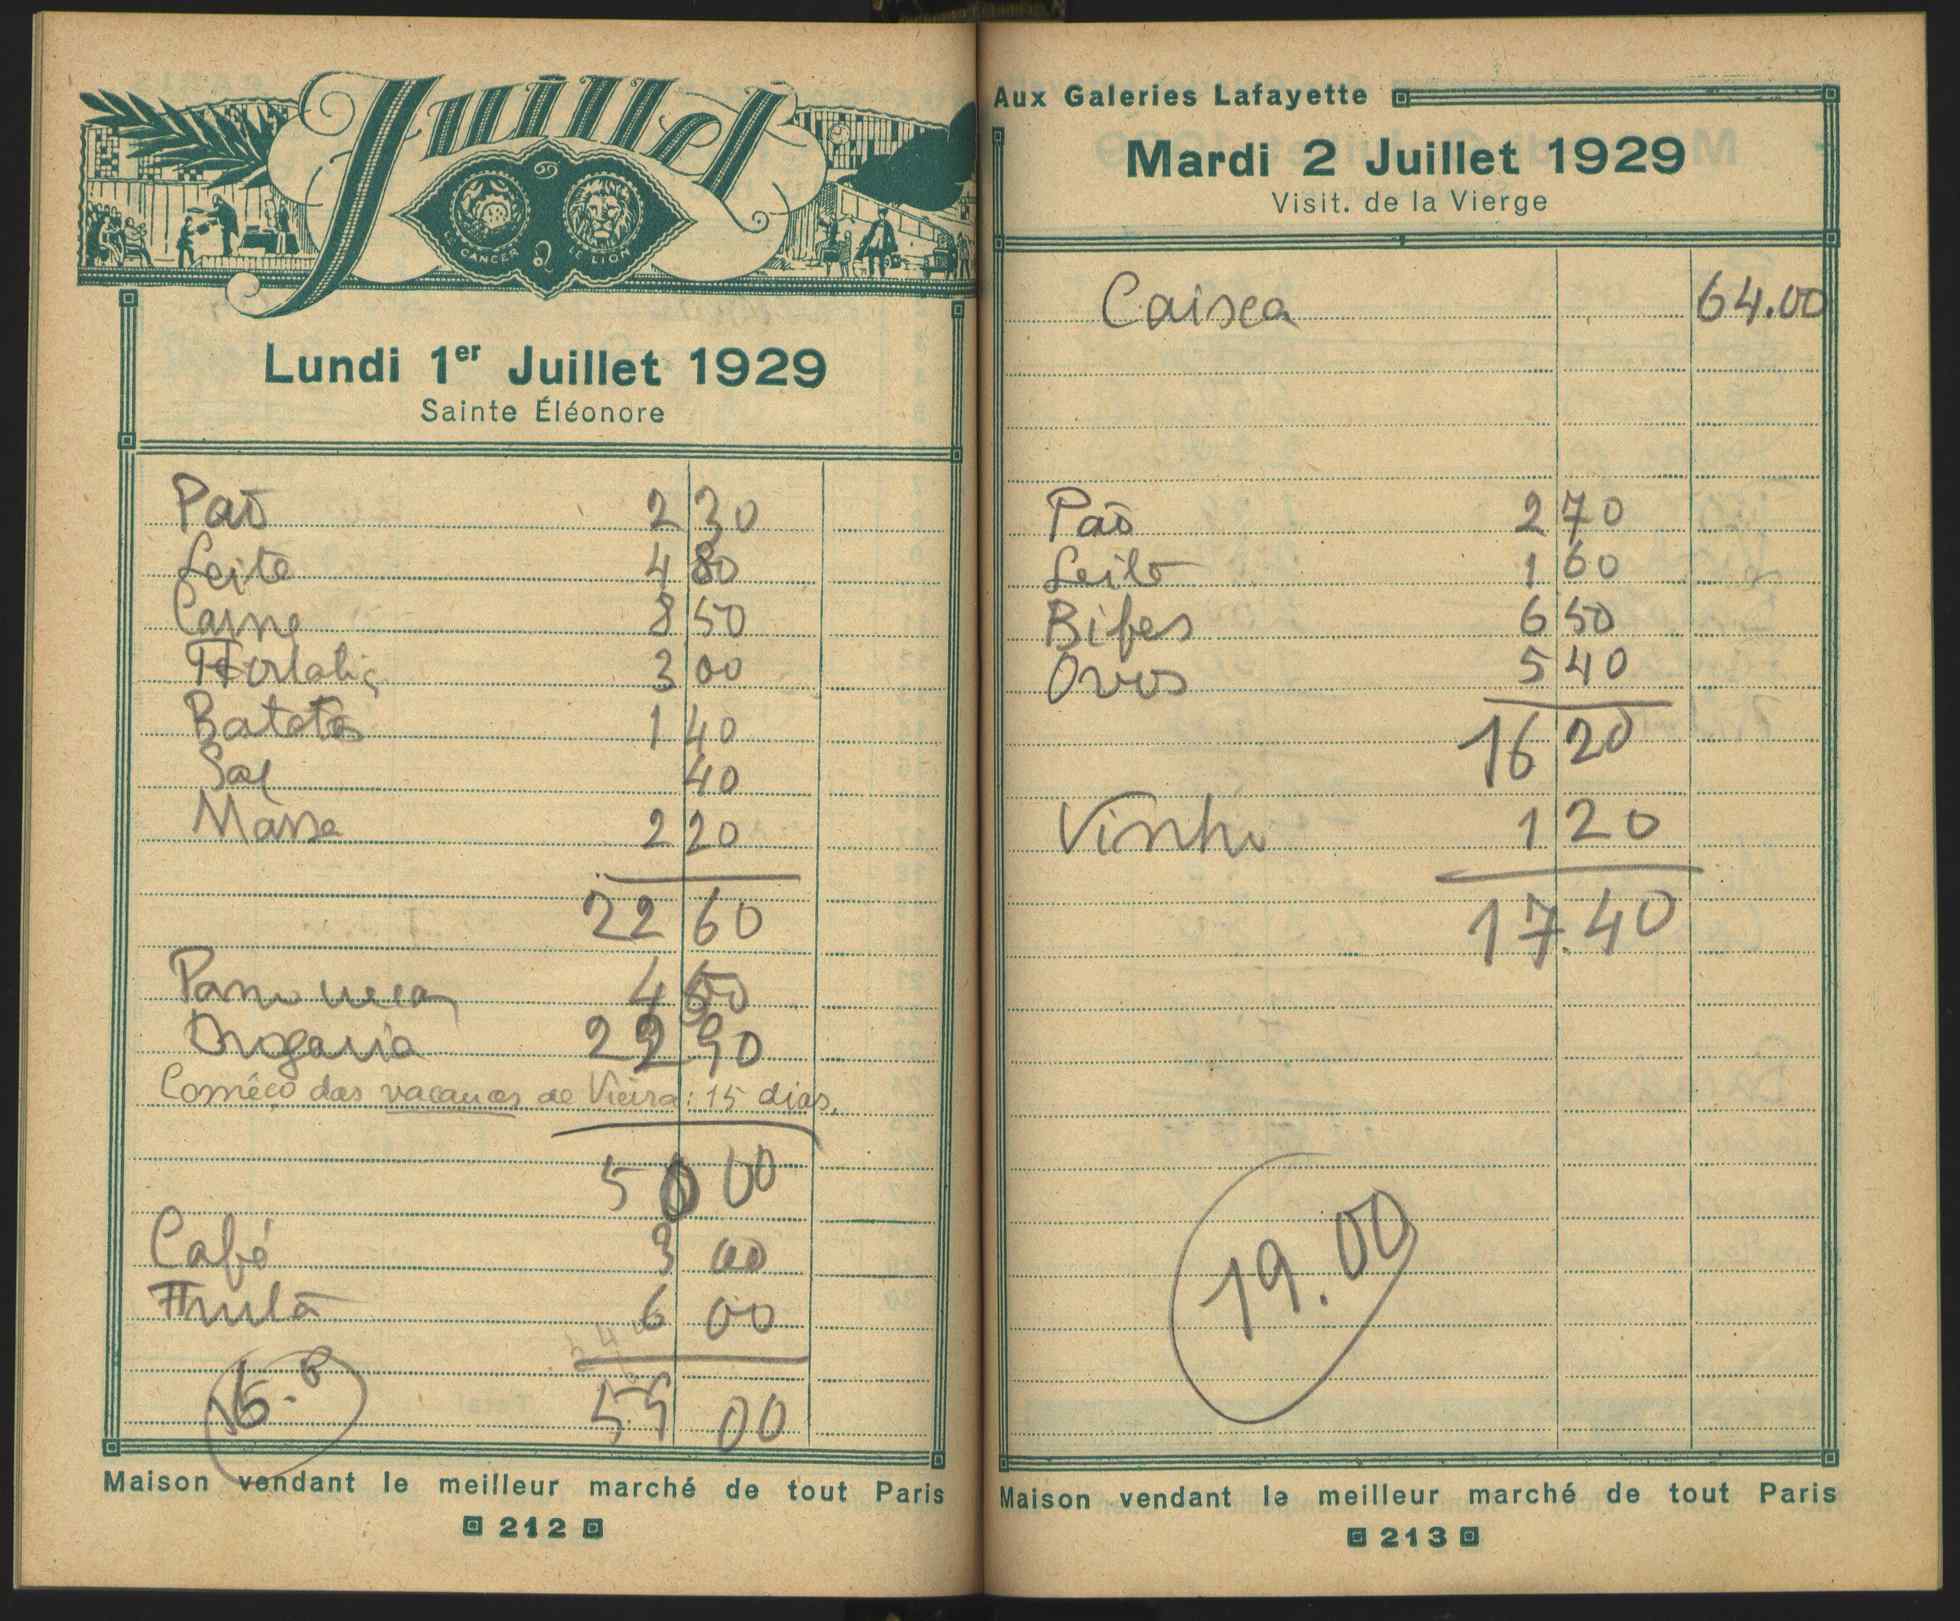 Juillet
CANCER LE LION
Lundi 1er Juillet 1929
Sainte Éléonore
Paõ 2 30
Leite 4 80
Carne 8 50
Hortaliç 3 00
Batatas 1 40
Sal 40
Massa 2 20
22 60
Pano 4 50
Drogaria 22 90
Comêço das vacances de Vieira: 15 dias.
50 00
Café 3 00
Fruta 6 00
59 00
Maison vendant le meilleur marché de tout Paris
212
Aux Galeries Lafayette
Mardi 2 Juillet 1929
Visit. de la Vierge
Caixa 64.00
Paõ 2 70
Leite 1 60
Bifes 6 50
Ovos 5 40
16 20
Vinho 1 20
17.40
19.00
Maison vendant le meilleur marché de tout Paris
213